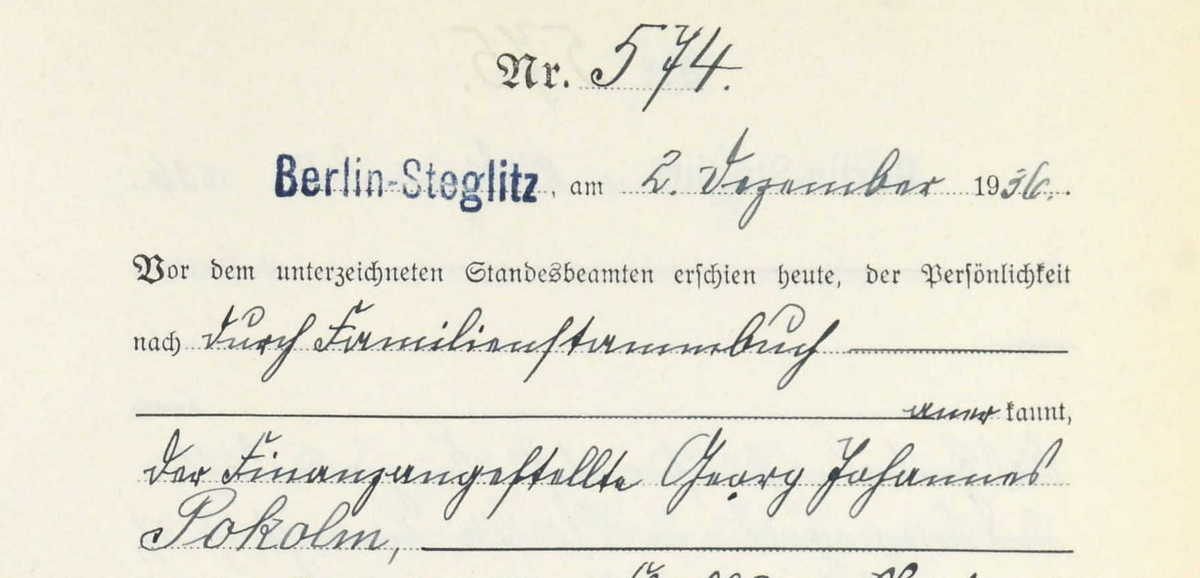 Nr. 574.
Berlin-Steglitz, am 2. Dezember 1936.
Vor dem unterzeichneten Standesbeamten erschien heute, der Persönlichkeit
nach durch Familienstammbuch
anerkannt,
der Finanzangestellte Georg Johannes
Pokolm,